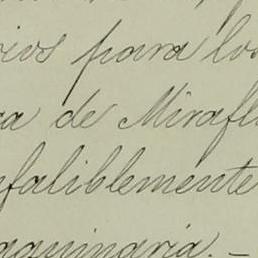 ios para lo
a de Mirafl
faliblemente
quinaria. –